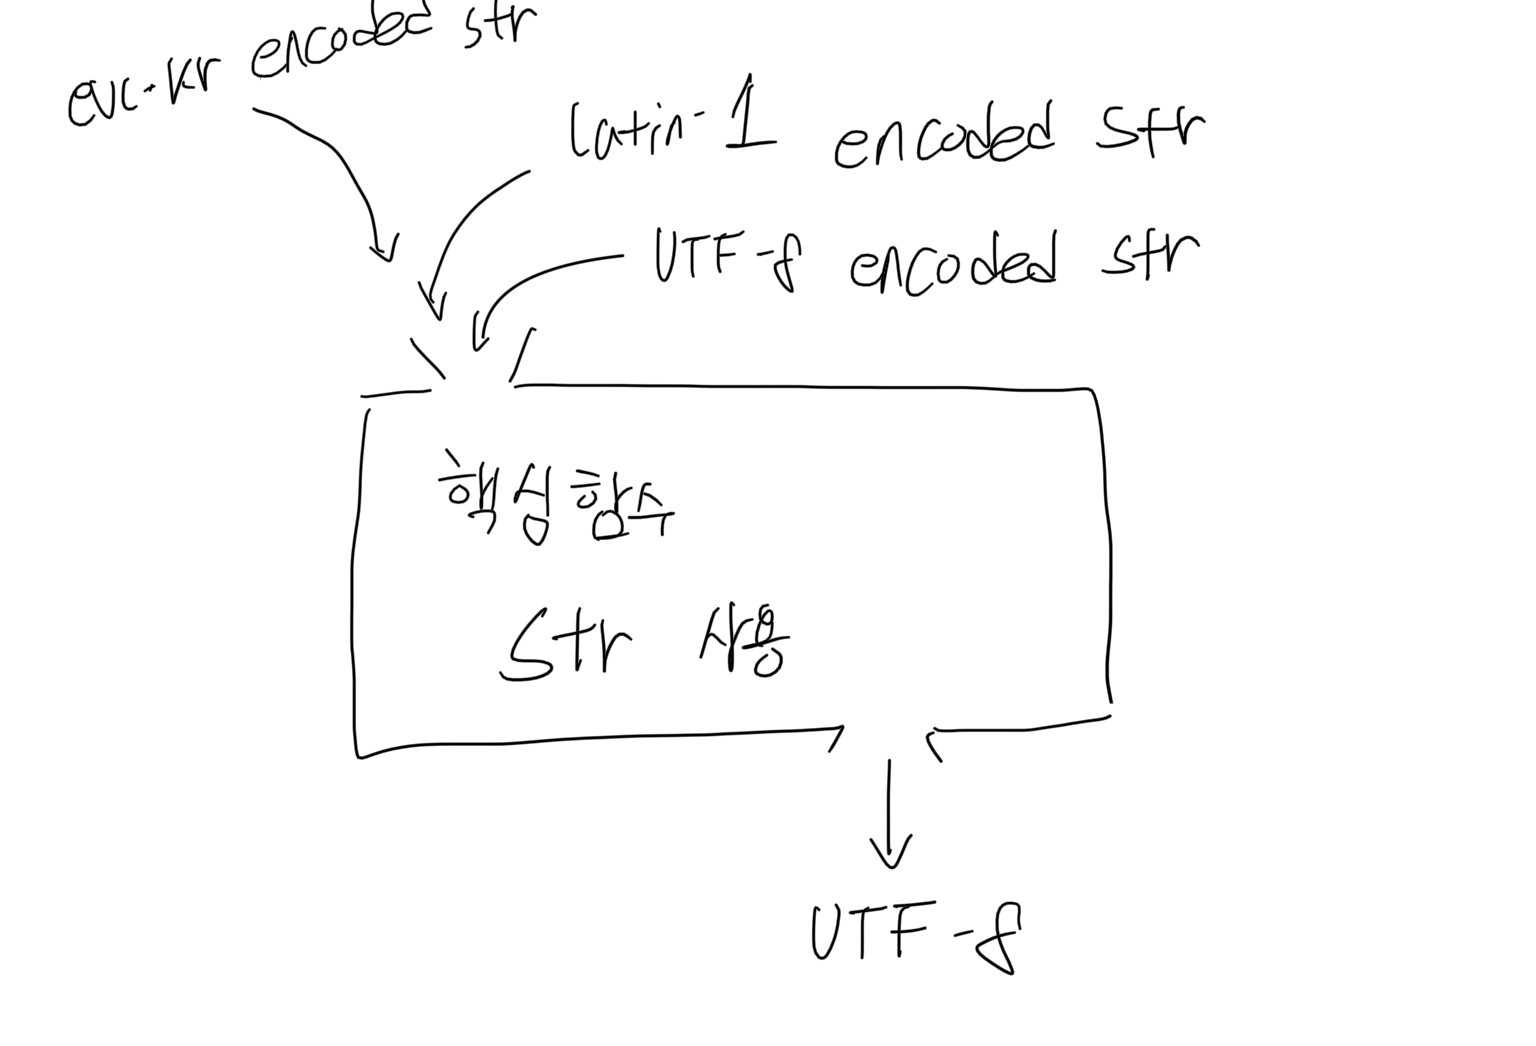 euc-kr encoded str
latin-1 encoded str
UTF-8 encoded str
핵심함수
str 사용
UTF-8